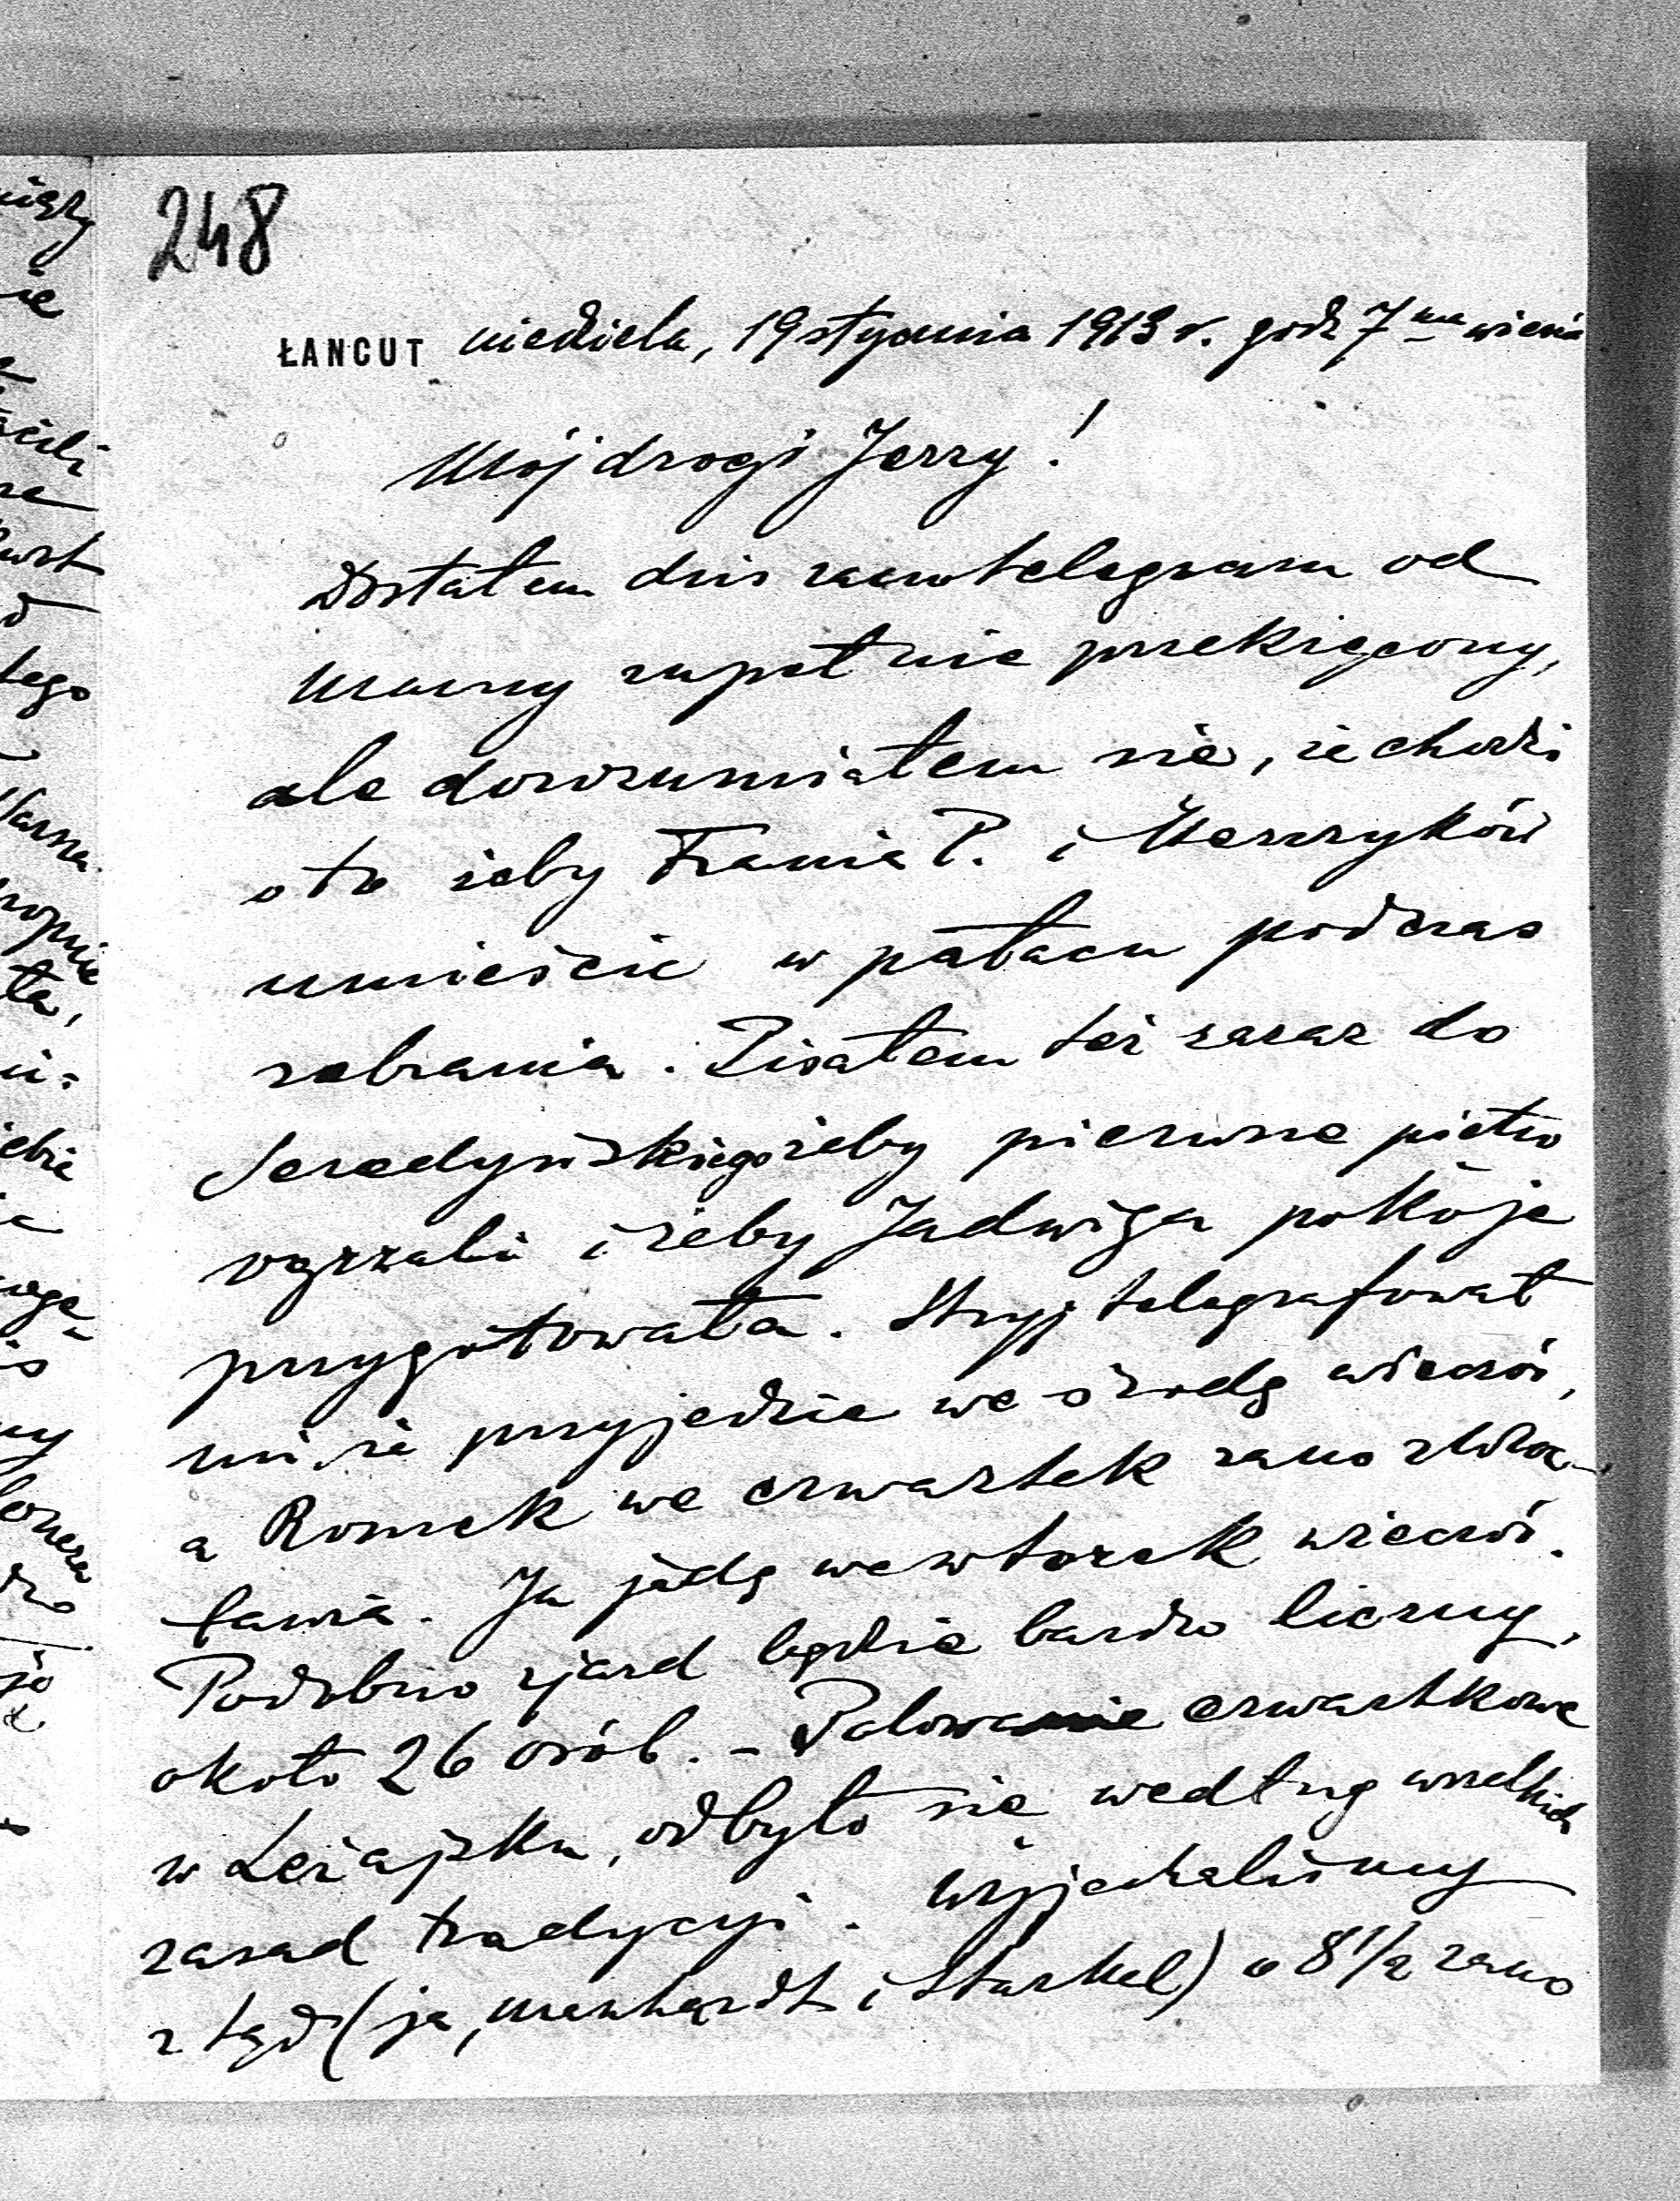 248
ŁANCUT niedziela, 19 stycznia 1913 r. godz 7ma wiecz
Mój drogi Jerzy!
Dostałem dziś rano telegram od
Mamy zupełnie przekręcony,
ale dorozumiałem się, że chodzi
o to żeby Frania P. i
umieścić w pałacu podczas
zebrania. Pisałem też zaraz do
Seredyńskiego żeby pierwsze piętro
ogrzali i żeby Jadwiga pokoje
przygotowała. Stryj telegrafował
mi, że przyjedzie we środę wieczór,
a Romek we czwartek rano z Wroc-
ławia. Ja jadę we wtorek wieczór.
Podobno zjazd będzie bardzo liczny,
około 26 osób. – Polowanie czwartkowe
w Leżajsku, odbyło się według wszelkich
zasad tradycyi. Wyjechaliśmy
ztąd (ja, i Starkel) o 8 1/2 rano